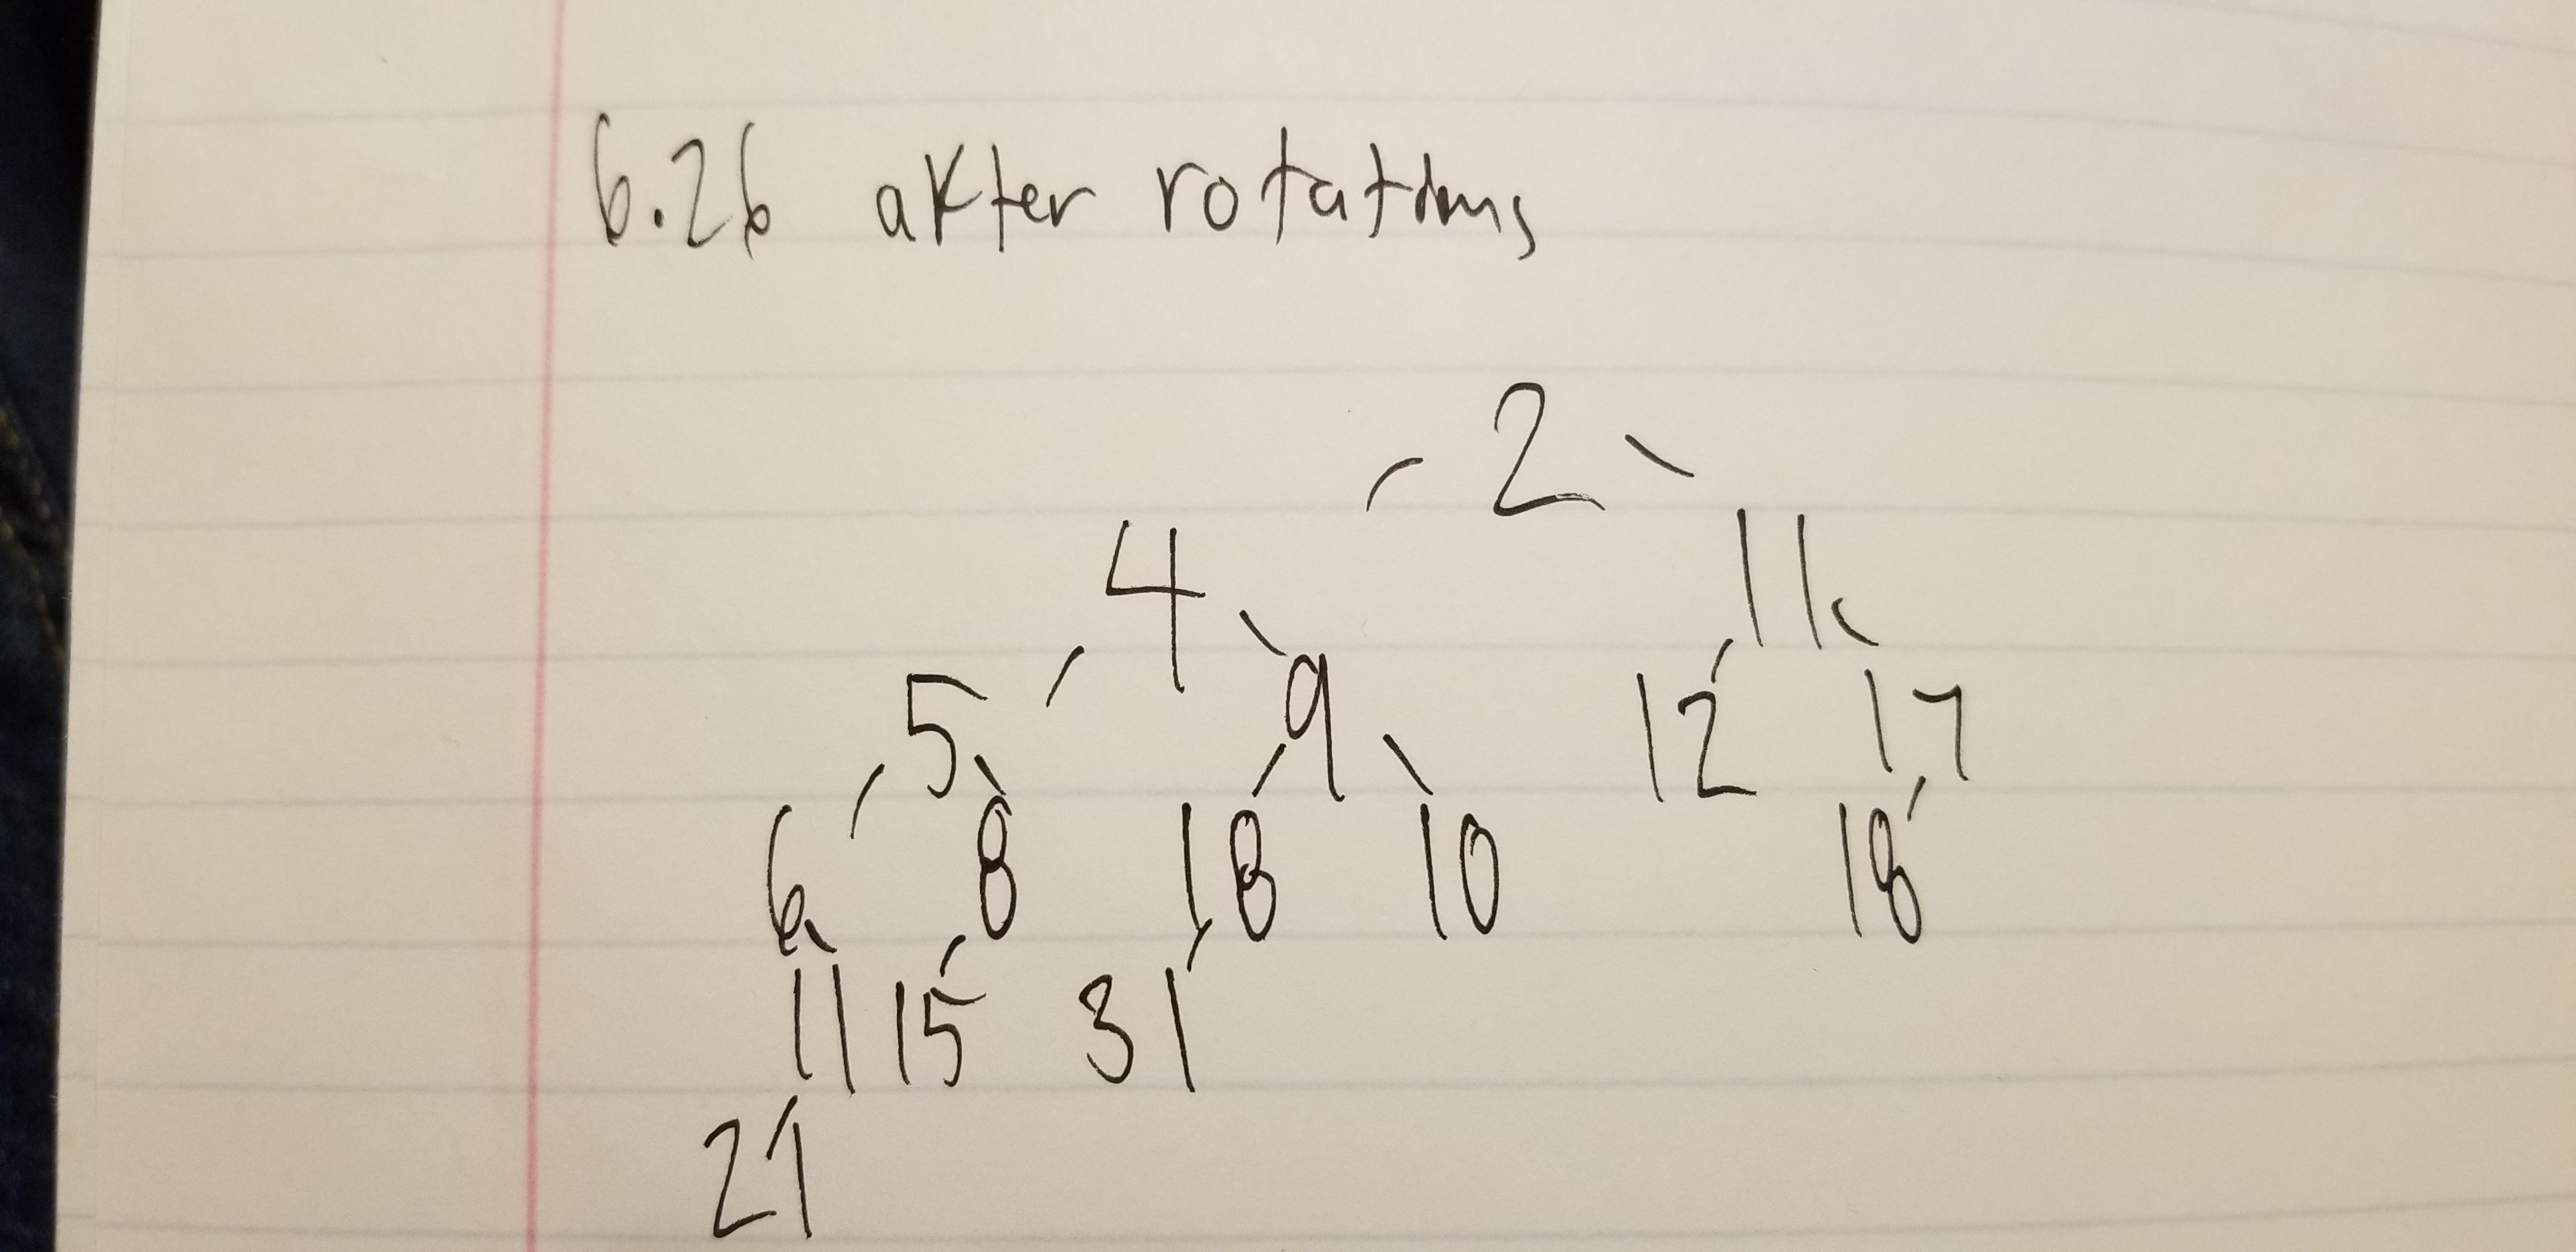 6.26 after rotatdms
2
4 11
5 9 12 17
6 8 18 10 18
11 15 31
21